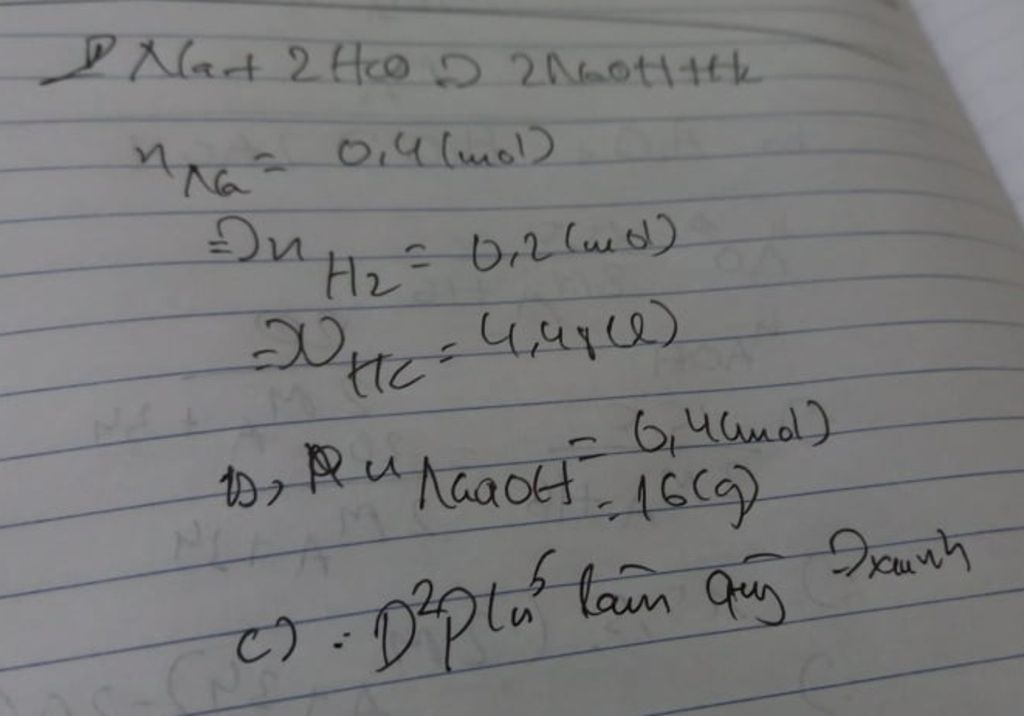 Na + 2H₂O => 2NaOH + H₂
n Na = 0,4 (mol)
=> n H2 = 0,2 (mol)
=> V H2 = 4,48 (l)
b, n NaOH = 0,4 (mol)
= 16 (g)
c) : D² làm quỳ => xanh